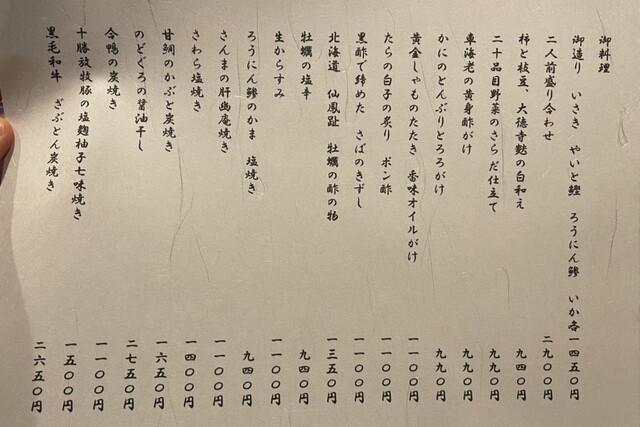 御料理
御造り　いさき　やいと鰹　ろうにん鰺　いか各一四五〇円
二人前盛り合わせ　二九〇〇円
柿と枝豆、大徳寺麩の白和え　九四〇円
二十品目野菜のさらだ仕立て　九九〇円
車海老の黄身酢がけ　九九〇円
かにのとんぶりとろろがけ　九九〇円
黄金しゃものたたき　香味オイルがけ　一一〇〇円
たらの白子の炙り　ポン酢　一一〇〇円
黒酢で締めた　さばのきずし　一一〇〇円
北海道　仙鳳趾　牡蠣の酢の物　一三五〇円
牡蠣の塩辛　九四〇円
生からすみ　一一〇〇円
ろうにん鰺のかま　塩焼き　九四〇円
さんまの肝幽庵焼き　一一〇〇円
さわら塩焼き　一四〇〇円
甘鯛のかぶと炭焼き　一六五〇円
のどぐろの醤油干し　二七五〇円
合鴨の炭焼き　一一〇〇円
十勝放牧豚の塩麹柚子七味焼き　一五〇〇円
黒毛和牛　ざぶとん炭焼き　二六五〇円